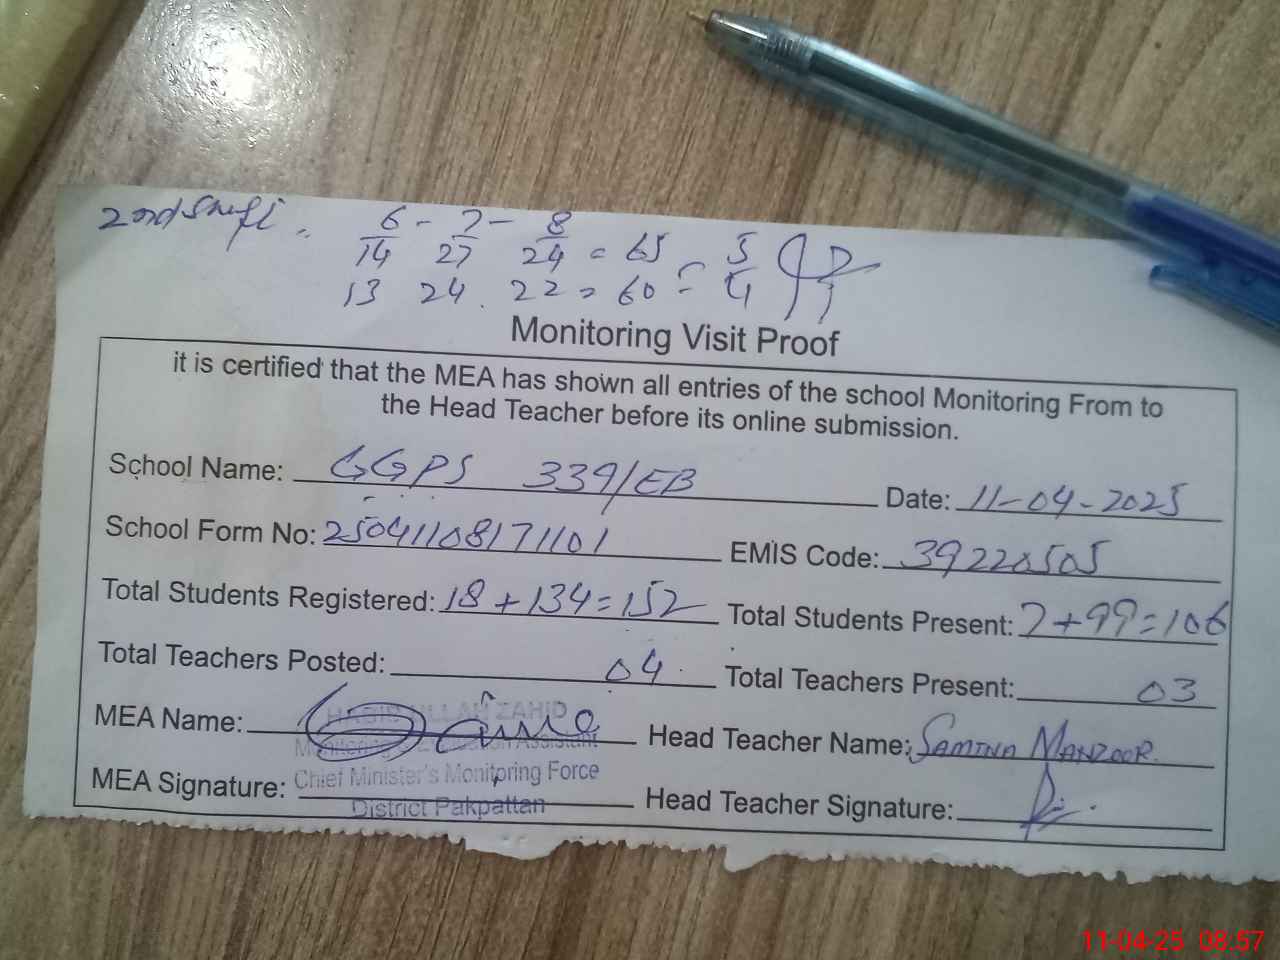 2nd Shift. 6 - 7 - 8
14 27 24 = 65 5
13 24 22 = 60 - 4
Monitoring Visit Proof
it is certified that the MEA has shown all entries of the school Monitoring From to
the Head Teacher before its online submission.
School Name: GGPS 339/EB Date: 11-04-2025
School Form No: 25041108171101 EMIS Code: 39220505
Total Students Registered: 18 + 134 = 152 Total Students Present: 7 + 99 = 106
Total Teachers Posted: 04 Total Teachers Present: 03
MEA Name: HABIB ULLAH ZAHID Head Teacher Name: SAMINA MANZOOR
Monitoring & Evaluation Assistant
MEA Signature: Chief Minister's Monitoring Force Head Teacher Signature:
District Pakpattan
11-04-25 08:57